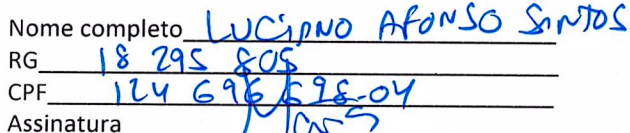 Nome completo LUCIANO AFONSO SANTOS
RG 18 295 805
CPF 124 696 698-04
Assinatura